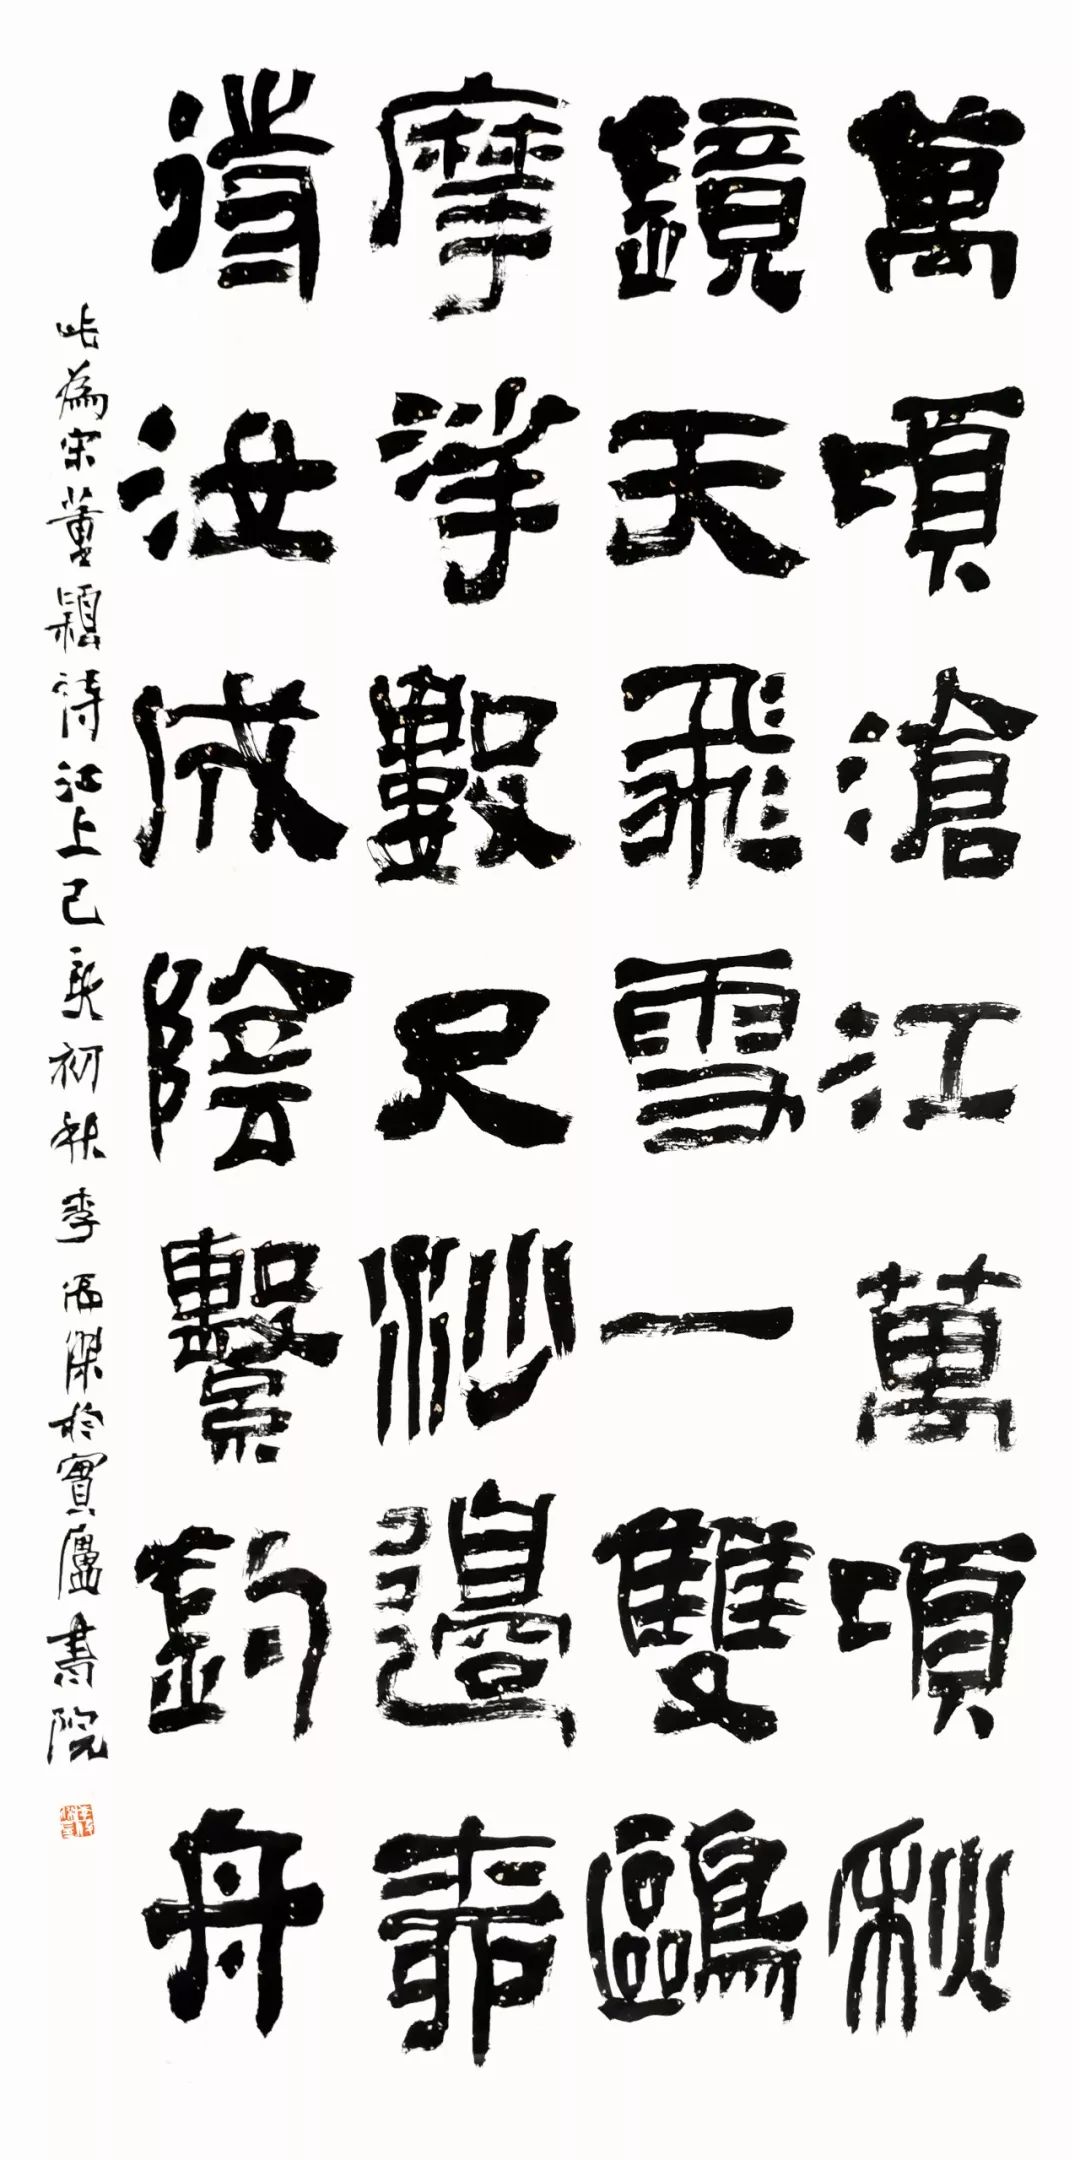 萬頃滄江萬頃秋
鏡天飛雪一雙鷗
摩挲數尺沙邊柳
待汝成陰繫釣舟
此為宋董穎詩江上己亥初秋李傑於實廬書院